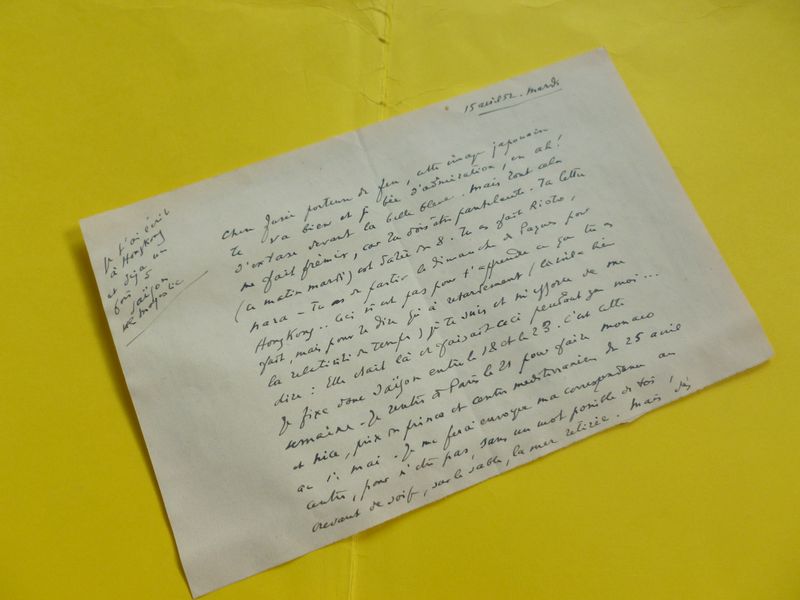 15 avril 52. Mardi
je t'ai écrit
à Hongkong
et déjà un
fois à
Saïgon
Majestic
Cher porteur de feu, cette image japonaise
te va bien et je d'admiration, en ah!
d'extase devant la belle bleue. Mais tout cela
me fait frémir, car tu dois être pantelante. Ta lettre
(ce matin mardi) est datée du 8. Tu as fait Kioto,
Nara - Tu as dû partir le dimanche de Pâques pour
Hongkong.. Ceci n'est pas pour t'apprendre ce que tu as
fait, mais pour te dire qu'à retardement (la
la relativité du temps) je te suis et m'efforce de me
dire : Elle était là et faisait ceci pendant que moi...
Je fixe donc Saïgon entre le 18 et le 23. C'est cette
semaine - Je rentre à Paris le 21 pour faire Monaco
et Nice, prix du prince et centre méditerranéen du 25 avril
au mai - Je me ferai envoyer ma correspondance au
centre, pour n'être pas, sans un mot possible de toi,
crevant de soif, sur le sable, la mer retirée. Mais dis